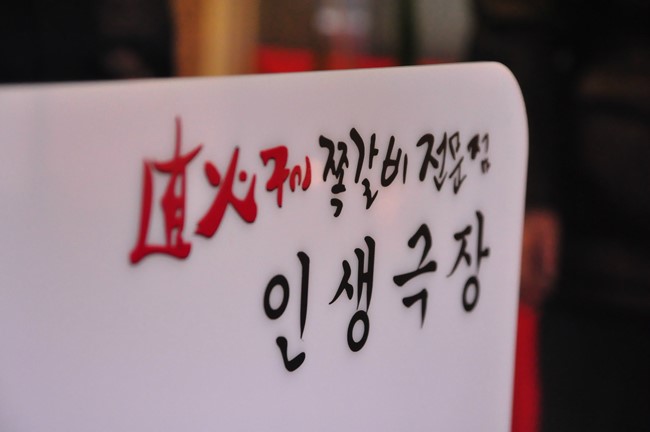 直火구이 쪽갈비 전문점
인생극장